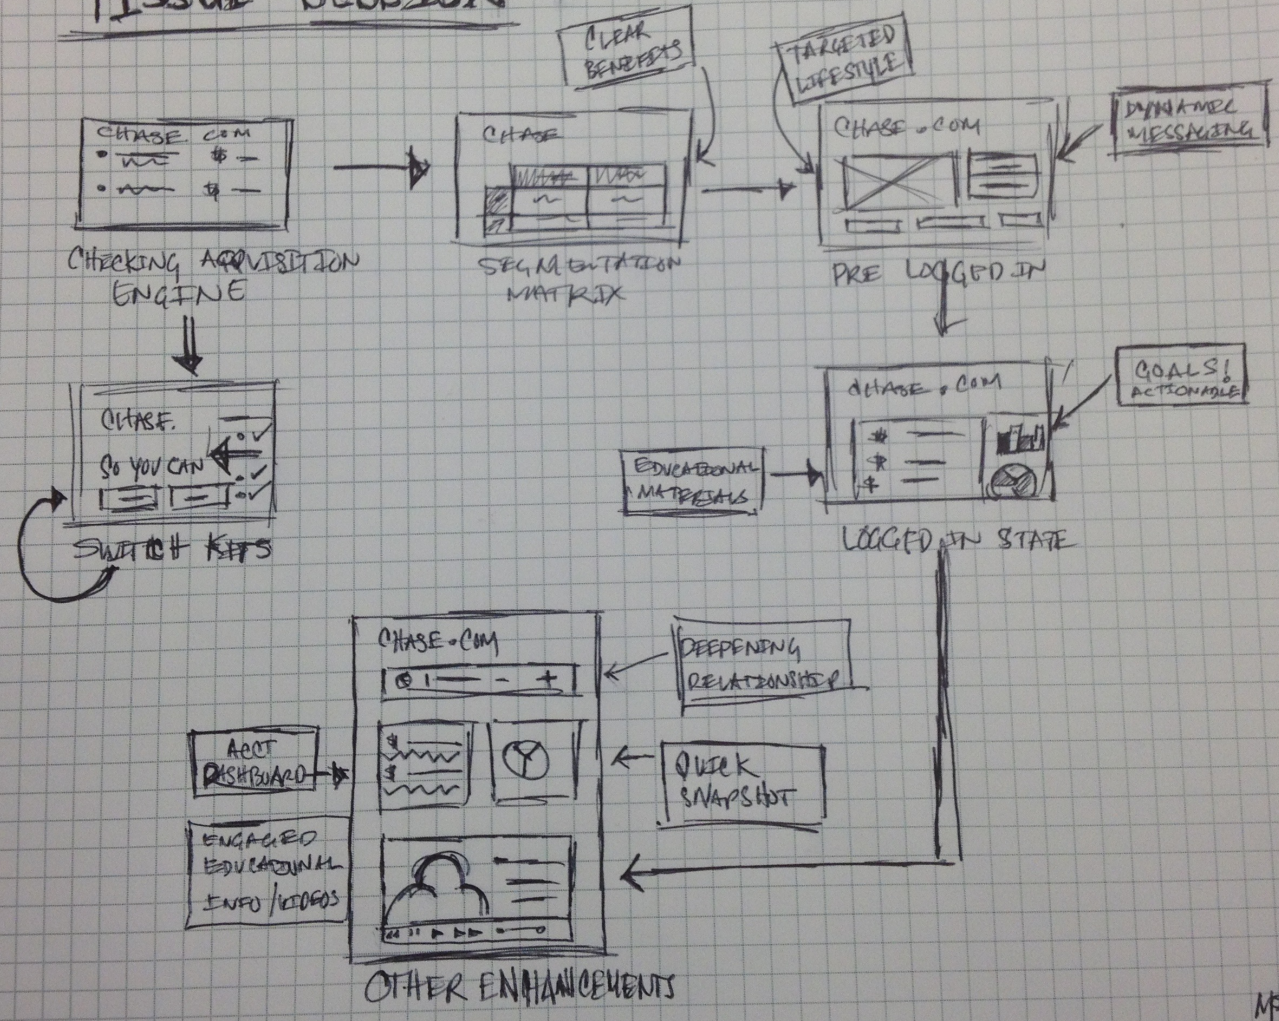 TISSUE SESSION
CLEAR
BENEFITS
TARGETED
LIFESTYLE
DYNAMIC
MESSAGING
CHASE.COM
$
$
CHECKING ACQUISITION
ENGINE
CHASE
SEGMENTATION
MATRIX
CHASE.COM
PRE LOGGED IN
CHASE.
SO YOU CAN
SWITCH KITS
CHASE.COM
$
$
$
GOALS!
ACTIONABLE
EDUCATIONAL
MATERIALS
LOGGED IN STATE
CHASE.COM
$
$
DEEPENING
RELATIONSHIP
ACCT
DASHBOARD
QUICK
SNAPSHOT
ENGAGED
EDUCATIONAL
INFO/VIDEOS
OTHER ENHANCEMENTS